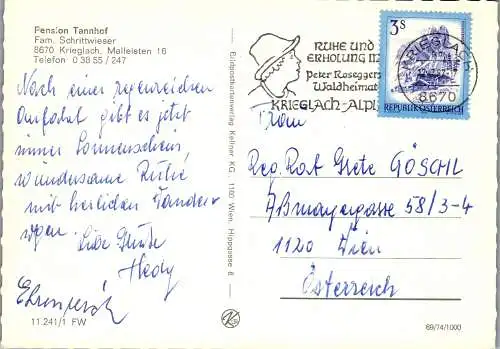 Pension Tannhof
Fam. Schrittwieser
8670 Krieglach, Malleisten 16
Telefon 0 38 55 / 247
Nach einer regenreichen
Anfahrt gibt es jetzt
immer Sonnenschein
wundersame Ruhe
mit herrlichen Wander
wegen.
Liebe Grüße
Hedy
11.241/1 FW
Bildpostkartenverlag Kellner KG., 1100 Wien, Hippgasse 8
K
RUHE UND
ERHOLUNG IN
Peter Roseggers
Waldheimat
KRIEGLACH-ALPL
KRIEGLACH
8670
3S
REPUBLIK ÖSTERREICH
Frau
Reg. Rat Grete GÖSCHL
Aßmayergasse 58/3-4
1120 Wien
Österreich
69/74/1000